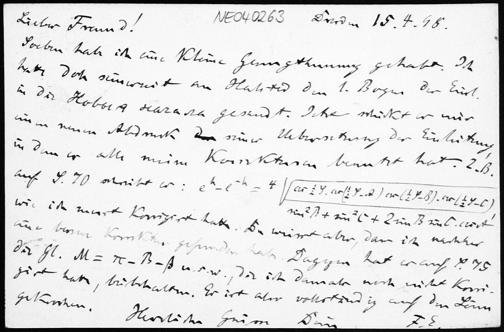 Lieber Freund!
NE040263
Dresden 15.4.98.
Soeben habe ich eine kleine Genugthuung gehabt. Ich
hatte doch seinerzeit an Halsted den 1. Bogen der Einl.
in die gesandt. Jetzt schickt er mir
einen neuen Abdruck seiner Uebersetzung der Einleitung,
in dem er alle meine Korrekturen benutzt hat. Z.B.
auf S. 70 schreibt er:
wie ich zuerst korrigirt hatte. Du weisst aber, dass ich nachher
eine Korrektur gefunden habe. Dagegen hat er auf S. 75
die Gl. M = π - B - β u.s.w., die ich damals noch nicht korri-
girt hatte, beibehalten. Er ist also vollständig auf den Leim
gekrochen.
Herzliche Grüsse Dein F.E.